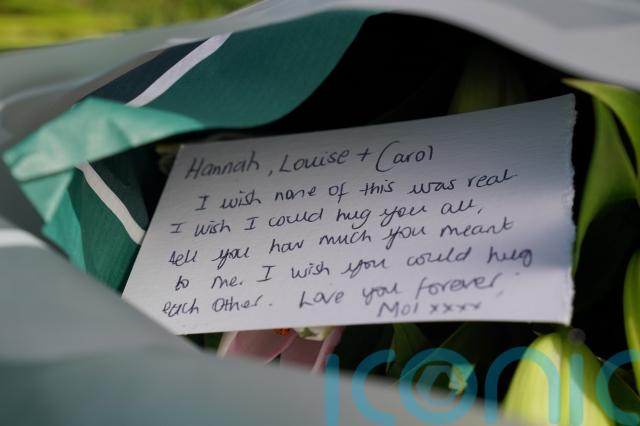 Hannah, Louise + Carol
I wish none of this was real
I wish I could hug you all,
tell you how much you meant
to me. I wish you could hug
each other. Love you forever,
Mol xxxx
iconic